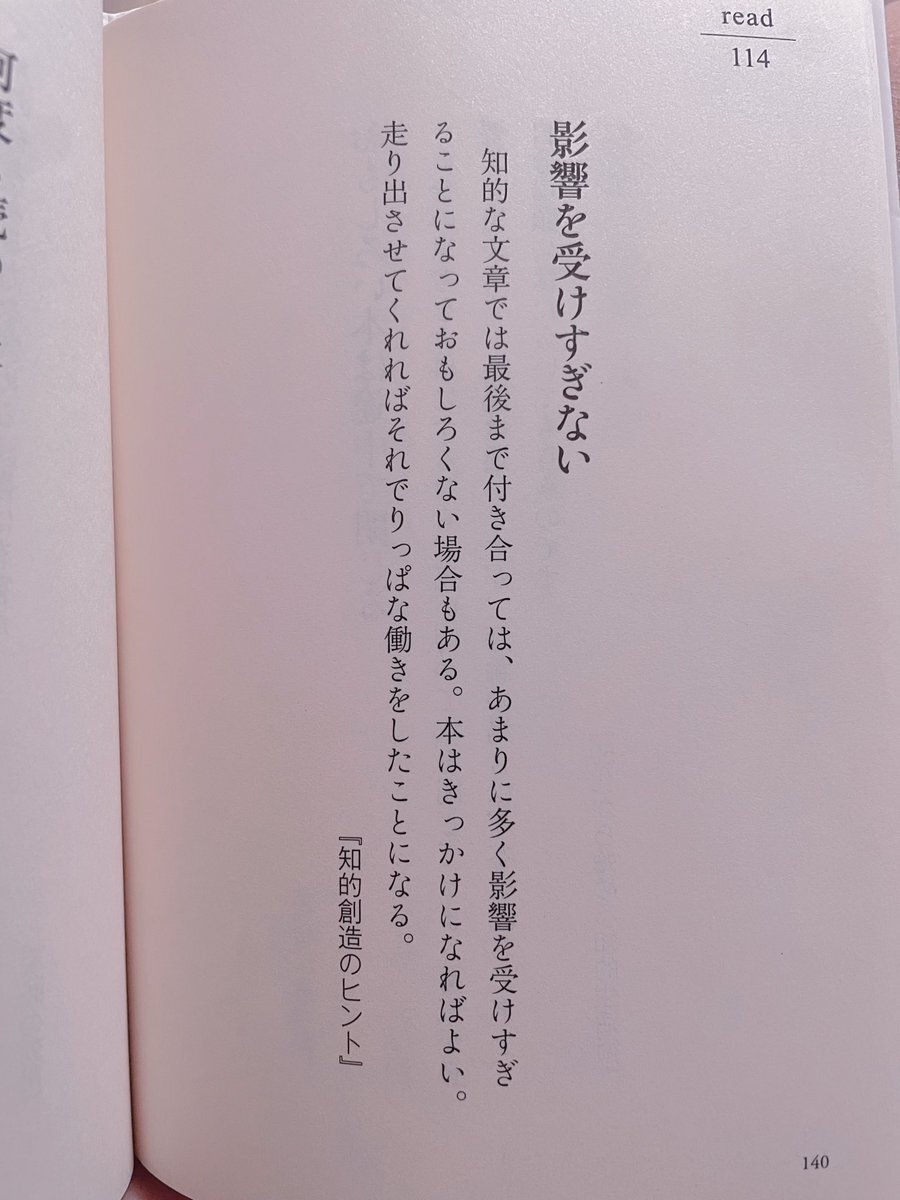 read
114
影響を受けすぎない
知的な文章では最後まで付き合っては、あまりに多く影響を受けすぎ
ることになっておもしろくない場合もある。本はきっかけになればよい。
走り出させてくれればそれでりっぱな働きをしたことになる。
『知的創造のヒント』
140